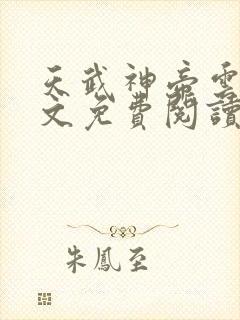 天武神帝雲
文免費閱讀
朱鳳至